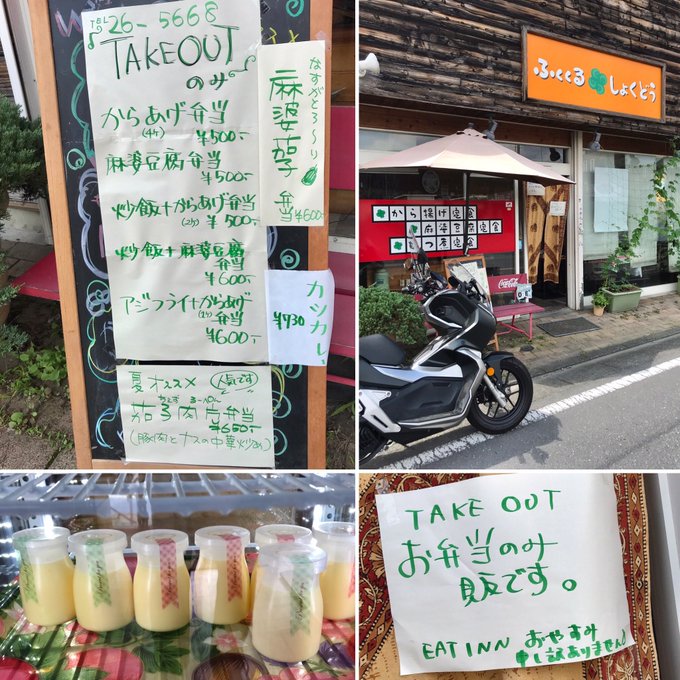 TEL 26-5668
TAKEOUT
のみ
からあげ弁当
(4ケ) ¥500-
麻婆豆腐弁当
¥500-
炒飯+からあげ弁当
(2ケ) ¥500-
炒飯+麻婆豆腐
弁当
¥600-
アジフライ+からあげ
弁当 (2ケ)
¥600-
なすがとろ~り
麻婆茄子
弁当 ¥600-
カツカレー
¥730
夏オススメ 人気です
茄子肉片弁当
¥650-
(豚肉とナスの中華炒め)
ふくくる しょくどう
から揚げ定食
麻婆豆腐定食
Coca-Cola
TAKE OUT
お弁当のみ
販です。
EAT INN おやすみ
申し訳ありません